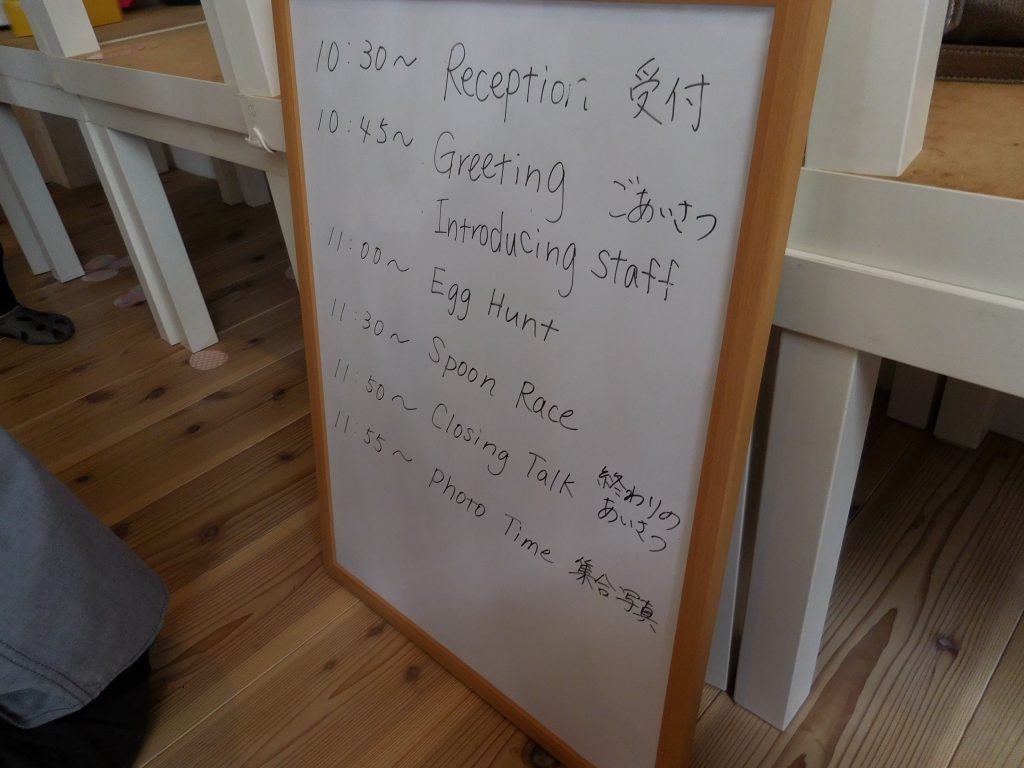 10:30~ Reception 受付
10:45~ Greeting ごあいさつ
Introducing staff
11:00~ Egg Hunt
11:30~ Spoon Race
11:50~ Closing Talk 終わりの
あいさつ
11:55~ Photo Time 集合写真